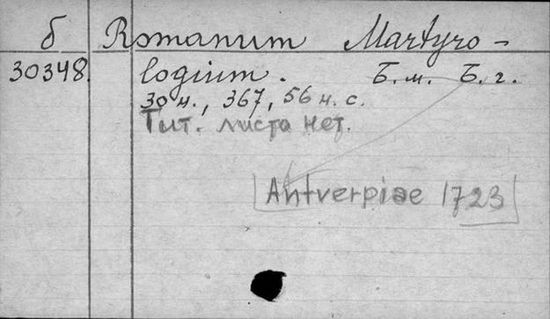 б Romanum Martyro-
30348. logium. Б. м. Б. г.
30 н., 367, 56 н. с.
Тит. листа нет.
[Antverpiae 1723]